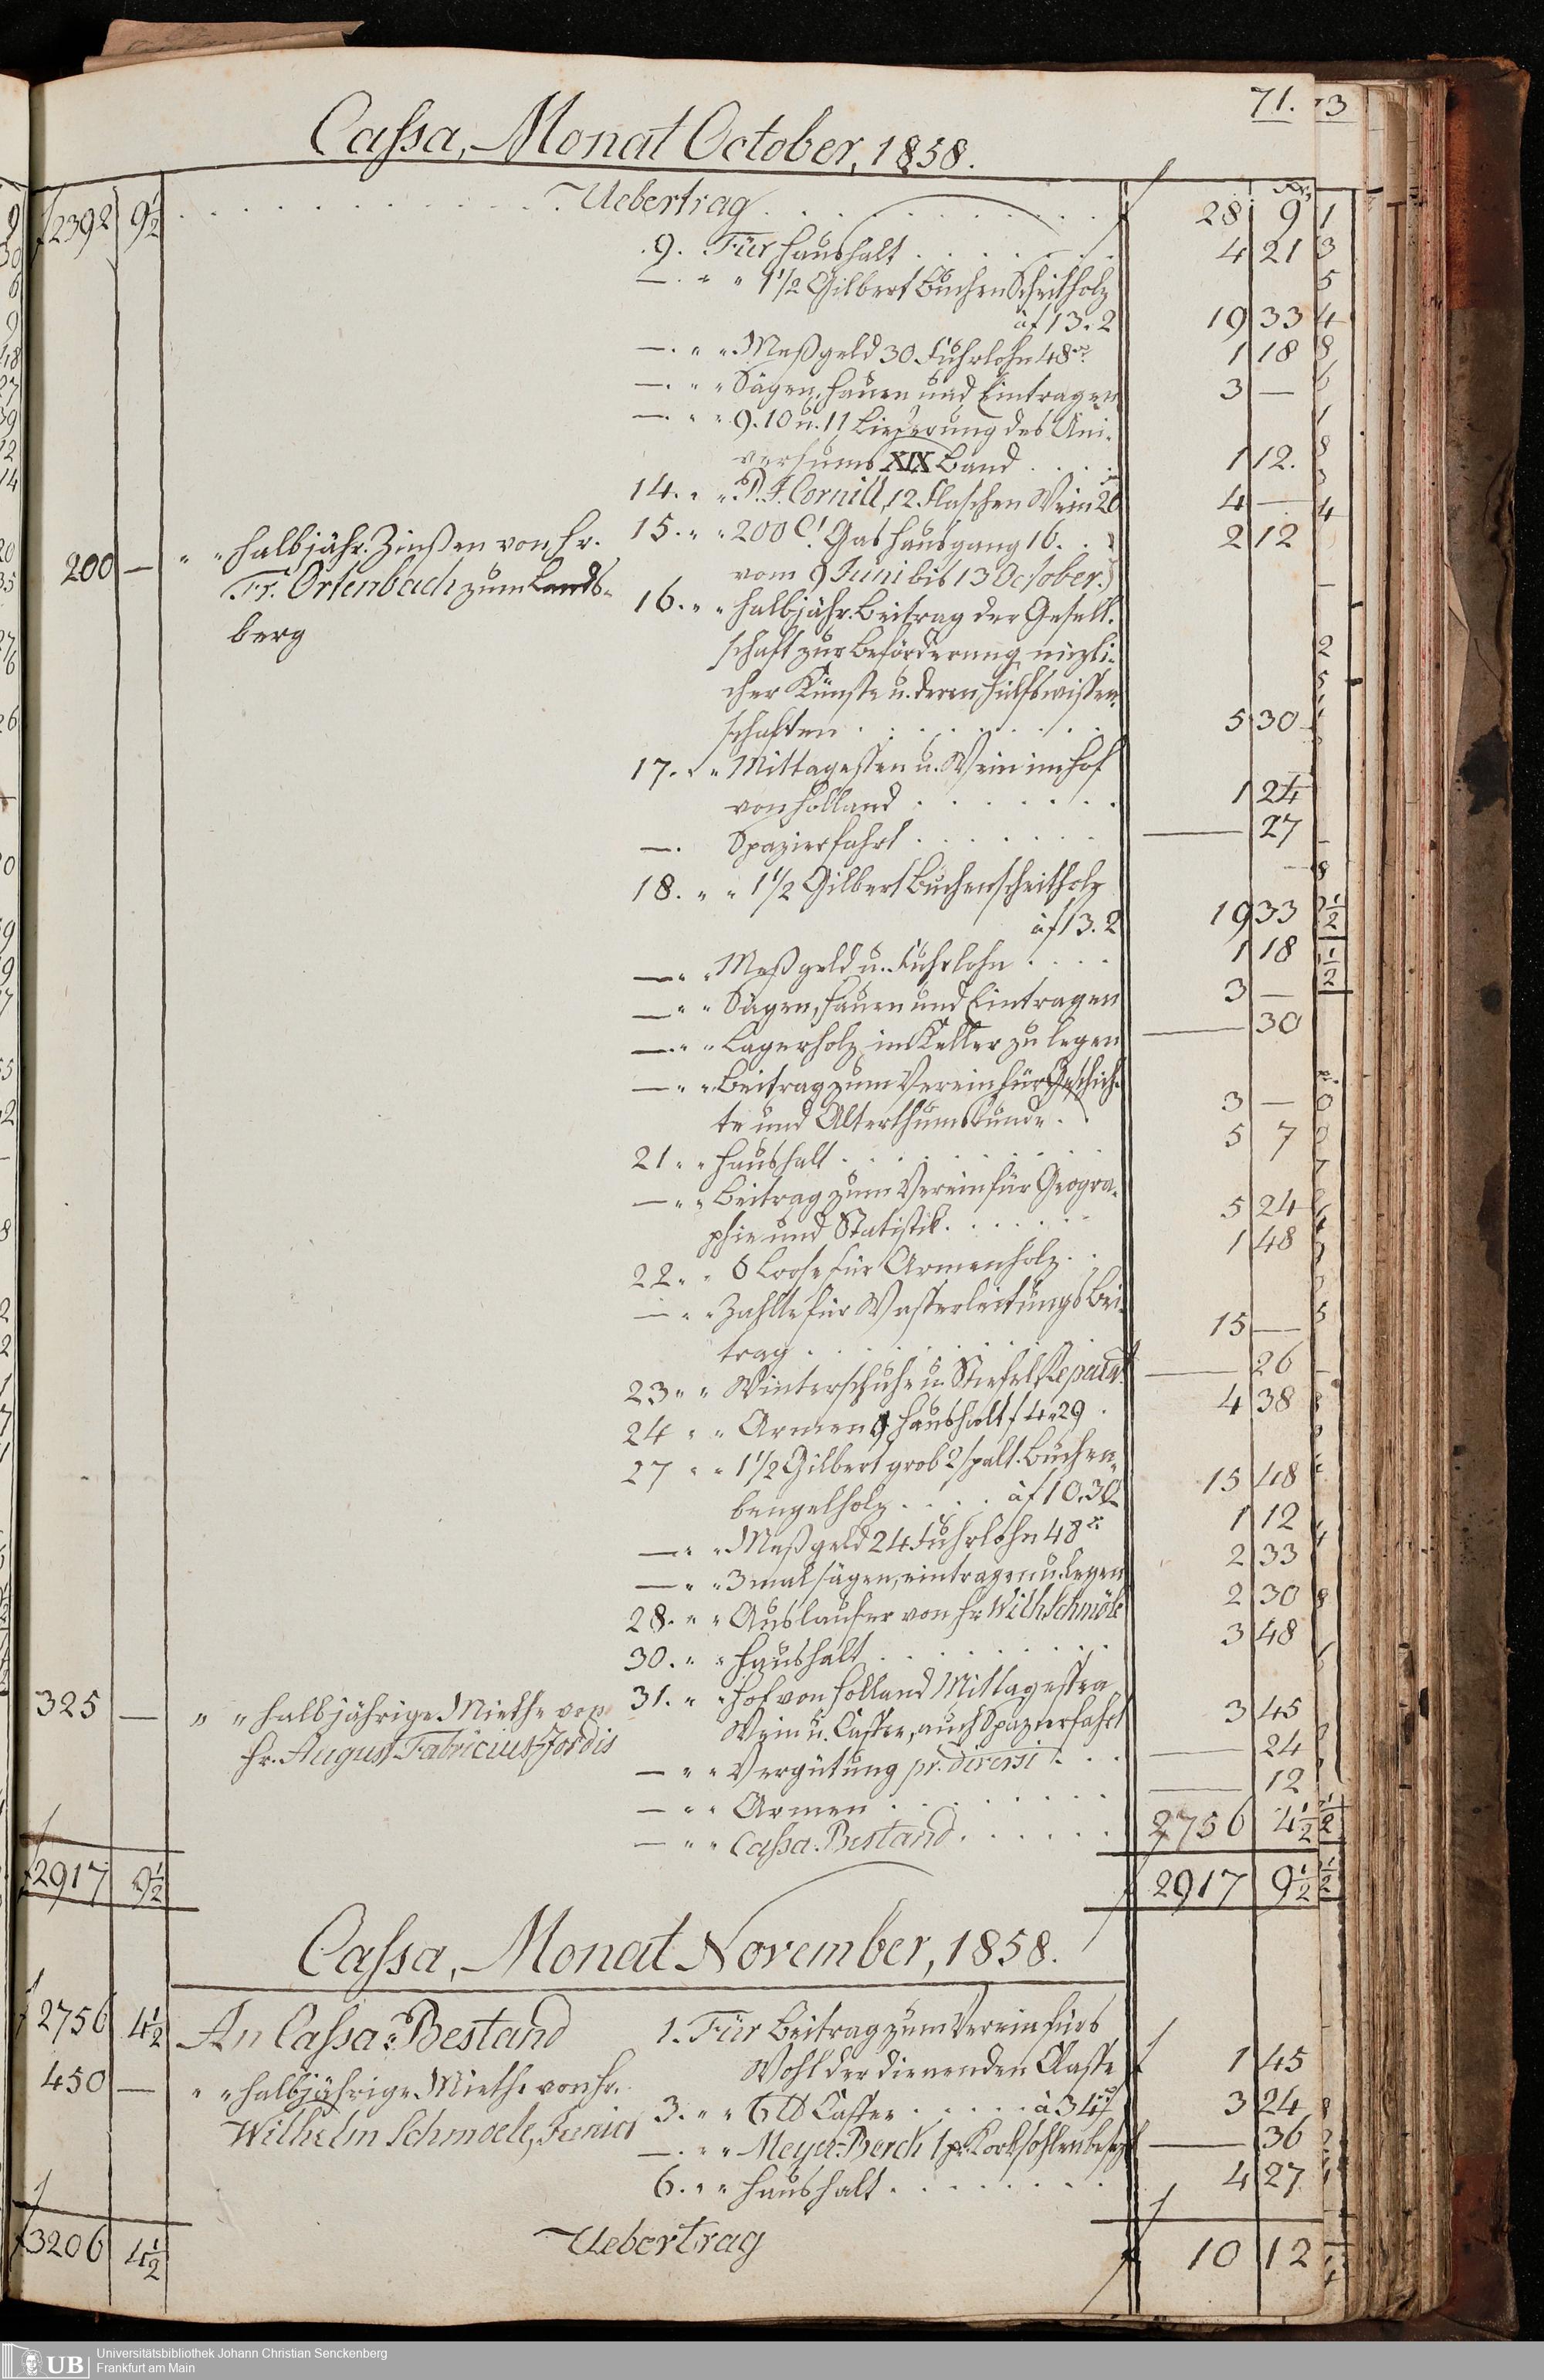 71. 73
Cassa, Monat October, 1858.
f2392 9½ Uebertrag f 28 9
9. Für Haushalt 4 21
—. " " 1½ Gilbert Buchen Scheitholz
à f 13.2 19 33
—. " " Meßgeld 30 Fuhrlohn 48 xr. 1 18
—. " " Sägen, Hauen und Eintragen 3 —
—. " " 9. 10 u. 11 Lieferung des Uni-
versums XIX Band 1 12.
14. " " P. F. Cornill, 12 Flaschen Wein 20 4 —
15. " " 200 C! Gas Hausgang 16. 2 12
vom 9 Juni bis 13 October.)
200 — " " halbjähr. Zinßen von Hr.
Fr. Ortenbach zum Lands-
berg
16. " " halbjähr. Beitrag der Gesell-
schaft zur Beförderung nüzli-
cher Künste u. deren Hülfswissen-
schaften 5 30
17. " " Mittagessen u. Wein im Hof
von Holland 1 24
—. Spazierfahrt — 27
18. " " 1½ Gilbert Buchenscheitholz
à f 13. 2 19 33
— " " Meßgeld u. Fuhrlohn 1 18
— " " Sägen, Hauen und Eintragen 3 —
— " " Lagerholz im Keller zu legen — 30
— " " Beitrag zum Verein für Geschich-
te und Alterthumskunde 3 —
21 " " Haushalt 5 7
— " " Beitrag zum Verein für Geogra-
phie und Statistik 5 24
22 " " 6 Loose für Armenholz 1 48
— " " Zahlte für Wasserleitungs Bei-
trag 15 —
23 " " Winterschuhe u. Stiefel Reparat. — 26
24 " " Armen 9 Haushalt f 4 " 29 4 38
27 " " 1½ Gilbert grob 2/spalt. Buchen-
bengelholz à f 10.32 15 48
— " " Meßgeld 24 Fuhrlohn 48 xr 1 12
— " " 3 mal sägen, eintragen u. legen 2 33
28. " " Auslaufer von Hr. Wilh Schmöle 2 30
30. " " Haushalt 3 48
325 — " " halbjährige Miethe von
Hr. August Fabricius-Jordis
31. " " Hof von Holland Mittagessen
Wein u. Caffee, auch Spazierfahrt 3 45
— " " Vergütung pr. Diversi — 24
— " " Armen — 12
— " " Cassa-Bestand 2756 4½
f2917 9½ f 2917 9½
Cassa, Monat November, 1858.
f 2756 4½ An Cassa-Bestand
450 — " " halbjährige Miethe von Hr.
Wilhelm Schmoele, Junior
1. Für Beitrag zum Verein fürs
Wohl der dienenden Classe f 1 45
3. " " 6 ℔ Caffee à 34 xr 3 24
—. " " Meyer-Berck 1 pr. Korksohlen besezt — 36
6. " " Haushalt 4 27
f3206 4½ Uebertrag f 10 12
UB
Universitätsbibliothek Johann Christian Senckenberg
Frankfurt am Main